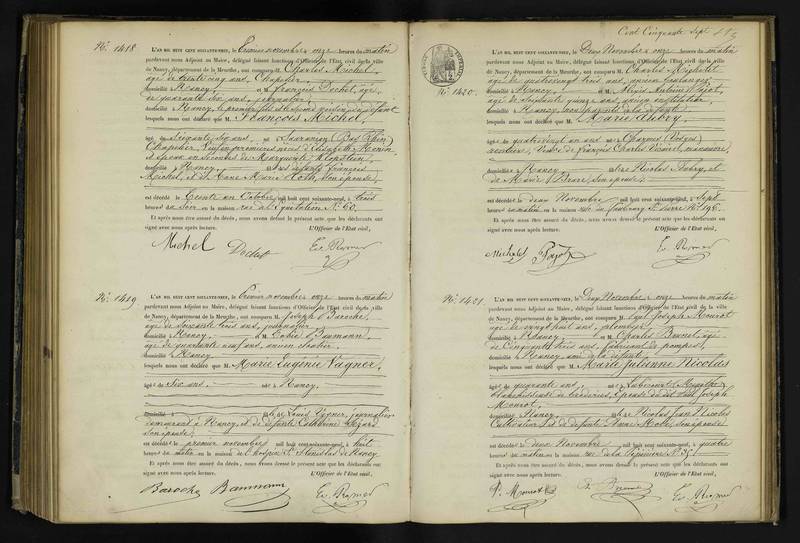 N°. 1418
L'AN MIL HUIT CENT SOIXANTE-NEUF, le Premier novembre à onze heures du matin
pardevant nous Adjoint au Maire, délégué faisant fonctions d'Officier de l'Etat civil de la ville
de Nancy, département de la Meurthe, ont comparu M. Charles Michel,
âgé de trente cinq ans, Chapelier,
domicilié à Nancy et M. François Dochet, âgé
de quarante six ans, journalier
domicilié à Nancy, le premier fils et le second voisin du défunt
lesquels nous ont déclaré que M. François Michel,
âgé de soixante six ans, né à Saaranion (Bas Rhin)
Chapelier, veuf en premières noces d'Elisabeth
et époux en secondes de Marguerite Klopstein,
domicilié à Nancy fils des défunts François
Michel, et de Anne Marie Hoth, son épouse
est décédé le trente un octobre mil huit cent soixante-neuf, à trois
heures du soir en la maison rue de l'Equitation N°. 60.
Et après nous être assuré du décès, nous avons dressé le présent acte que les déclarants ont
signé avec nous après lecture. L'Officier de l'Etat civil,
Michel Dochet
N°. 1419
L'AN MIL HUIT CENT SOIXANTE-NEUF, le Premier novembre à onze heures du matin
pardevant nous Adjoint au Maire, délégué faisant fonctions d'Officier de l'Etat civil de la ville
de Nancy, département de la Meurthe, ont comparu M. Joseph Baroche,
âgé de soixante trois ans, journalier
domicilié à Nancy et M. Tobie Baumann,
âgé de quarante neuf ans, ancien
domicilié à Nancy
lesquels nous ont déclaré que M. Marie Eugénie Vagner,
âgée de six ans, née à Nancy,
domicilié à fille de Louis Vagner, journalier
demeurant à Nancy, et de défunte Catherine
son épouse
est décédée le premier novembre mil huit cent soixante-neuf, à huit
heures du matin en la maison de l'hospice St. Stanislas de Nancy
Et après nous être assuré du décès, nous avons dressé le présent acte que les déclarants ont
signé avec nous après lecture. L'Officier de l'Etat civil,
Baroche Baumann
Cent Cinquante Sept
N°. 1420
L'AN MIL HUIT CENT SOIXANTE-NEUF, le Deux Novembre à onze heures du matin
pardevant nous Adjoint au Maire, délégué faisant fonctions d'Officier de l'Etat civil de la ville
de Nancy, département de la Meurthe, ont comparu M. Charles Michelet
âgé de quatrevingt trois ans, ancien boulanger
domicilié à Nancy et M. Alexis Antoine Pogot,
âgé de soixante quinze ans, ancien instituteur,
domicilié à Nancy,
lesquels nous ont déclaré que M. Marie Aubry
âgée de quatrevingt un ans née à Charmes (Vosges)
rentière, Veuve de François Charles
domicilié à Nancy fille de Nicolas Aubry, et
de Marie Pierre, son épouse
est décédée le deux Novembre mil huit cent soixante-neuf, à sept
heures du matin en la maison rue du faubourg St. Pierre N°. 196.
Et après nous être assuré du décès, nous avons dressé le présent acte que les déclarants ont
signé avec nous après lecture. L'Officier de l'Etat civil,
Michelet Pogot
N°. 1421
L'AN MIL HUIT CENT SOIXANTE-NEUF, le Deux Novembre à onze heures du matin
pardevant nous Adjoint au Maire, délégué faisant fonctions d'Officier de l'Etat civil de la ville
de Nancy, département de la Meurthe, ont comparu M. Paul Joseph Mourot
âgé de vingt huit ans, plombier
domicilié à Nancy et M. Charles, âgé
de cinquante trois ans, fabricant de pompes,
domicilié à Nancy, ami de la défunte
lesquels nous ont déclaré que M. Marie Julienne Nicolas
âgée de quarante ans, née à (Moselle)
épouse du dit Paul Joseph
Mourot,
domicilié à Nancy fille de Nicolas Jean Nicolas
Cultivateur et de défunte Anne, son épouse
est décédée le deux Novembre mil huit cent soixante-neuf, à quatre
heures du matin en la maison rue de la Pépinière N°.
Et après nous être assuré du décès, nous avons dressé le présent acte que les déclarants ont
signé avec nous après lecture. L'Officier de l'Etat civil,
P. Mourot